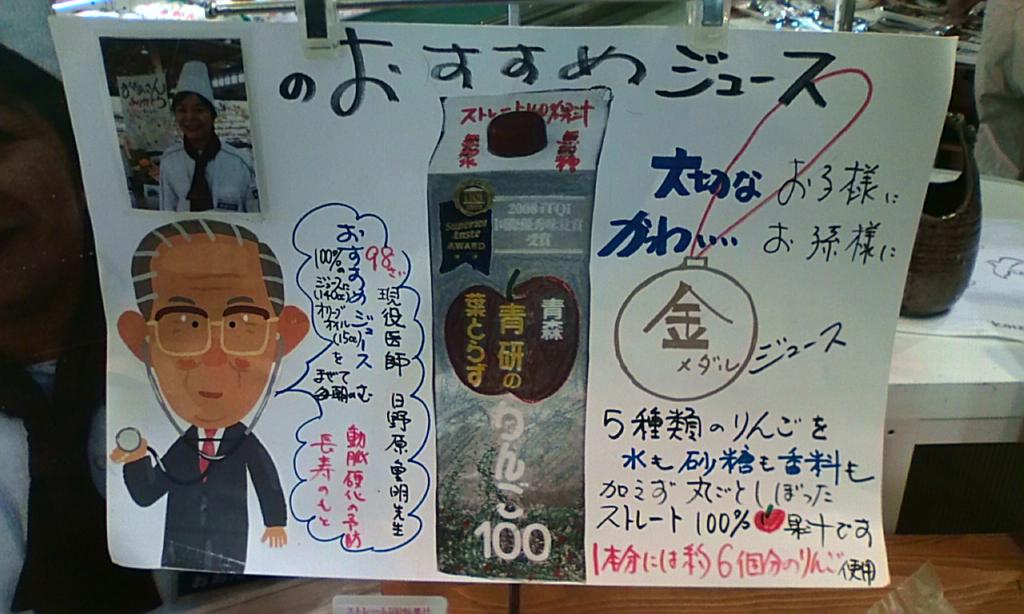 のおすすめジュース
98才
現役医師 日野原重明先生
おすすめジュース
100%の
ジュースに
オリーブ
オイル
(15cc)を
まぜて
毎朝のむ
動脈硬化の予防
長寿のもと
ストレート100%果汁
2008 iTQi
国際優秀味覚賞
受賞
Superior
taste
AWARD
青森
青研の
葉とらず
りんご
100
大切な お子様に
かわいい お孫様に
金
メダル
ジュース
5種類のりんごを
水も砂糖も香料も
加えず丸ごとしぼった
ストレート100%果汁です
1本分には約6個分のりんご使用
ストレート100%果汁